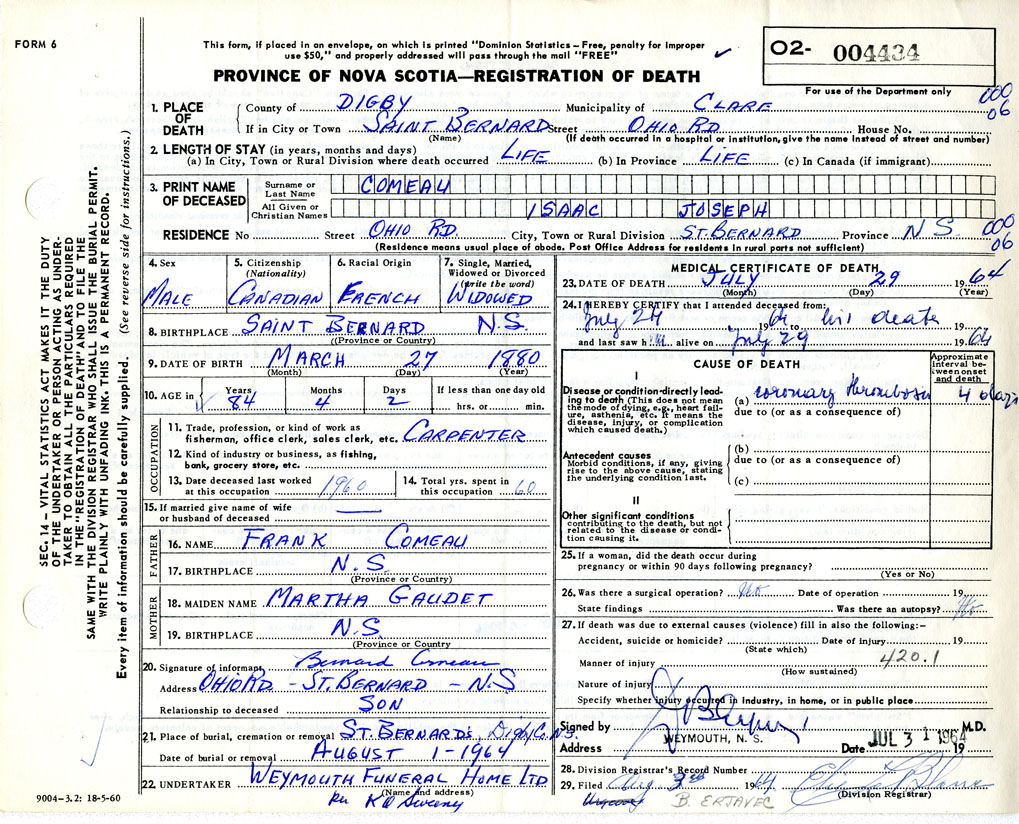 FORM 6
This form, if placed in an envelope, on which is printed "Dominion Statistics – Free, penalty for improper
use $50," and properly addressed will pass through the mail "FREE"
O2- 004434
For use of the Department only
PROVINCE OF NOVA SCOTIA—REGISTRATION OF DEATH
000
06
1. PLACE OF DEATH County of DIGBY Municipality of CLARE
If in City or Town SAINT BERNARD Street OHIO RD House No.
(Name) (If death occurred in a hospital or institution, give the name instead of street and number)
2. LENGTH OF STAY (in years, months and days)
(a) In City, Town or Rural Division where death occurred LIFE (b) In Province LIFE (c) In Canada (if immigrant)
3. PRINT NAME OF DECEASED
Surname or Last Name COMEAU
All Given or Christian Names ISAAC JOSEPH
RESIDENCE No Street OHIO RD. City, Town or Rural Division ST. BERNARD Province N.S. 000
06
(Residence means usual place of abode. Post Office Address for residents in rural parts not sufficient)
4. Sex MALE
5. Citizenship (Nationality) CANADIAN
6. Racial Origin FRENCH
7. Single, Married, Widowed or Divorced (write the word) WIDOWED
8. BIRTHPLACE SAINT BERNARD N.S.
(Province or Country)
9. DATE OF BIRTH MARCH 27 1880
(Month) (Day) (Year)
10. AGE in Years 84 Months 4 Days 2 If less than one day old
hrs. or min.
OCCUPATION
11. Trade, profession, or kind of work as
fisherman, office clerk, sales clerk, etc. CARPENTER
12. Kind of industry or business, as fishing,
bank, grocery store, etc.
13. Date deceased last worked
at this occupation 1960
14. Total yrs. spent in
this occupation 60
15. If married give name of wife
or husband of deceased
FATHER
16. NAME FRANK COMEAU
17. BIRTHPLACE N.S.
(Province or Country)
MOTHER
18. MAIDEN NAME MARTHA GAUDET
19. BIRTHPLACE N.S.
(Province or Country
20. Signature of informant Bernard Comeau
Address OHIO RD - ST. BERNARD - N.S
Relationship to deceased SON
21. Place of burial, cremation or removal ST. BERNARD'S Digby Co. N.S.
Date of burial or removal AUGUST 1-1964
22. UNDERTAKER WEYMOUTH FUNERAL HOME LTD
(Name and address)
MEDICAL CERTIFICATE OF DEATH
23. DATE OF DEATH JULY 29 1964
(Month) (Day) (Year)
24. I HEREBY CERTIFY that I attended deceased from:
July 24 1964 to his death 19
and last saw him alive on July 29 1964
CAUSE OF DEATH
Approximate interval between onset and death
I
Disease or condition directly leading to death (This does not mean the mode of dying, e.g., heart failure, asthenia, etc. It means the disease, injury, or complication which caused death.)
(a) coronary thrombosis 4 days
due to (or as a consequence of)
Antecedent causes
Morbid conditions, if any, giving rise to the above cause, stating the underlying condition last.
(b)
due to (or as a consequence of)
(c)
II
Other significant conditions
contributing to the death, but not related to the disease or condition causing it.
25. If a woman, did the death occur during
pregnancy or within 90 days following pregnancy?
(Yes or No)
26. Was there a surgical operation? No Date of operation 19
State findings Was there an autopsy? No
27. If death was due to external causes (violence) fill in also the following:–
Accident, suicide or homicide? Date of injury 19
(State which)
420.1
Manner of injury
(How sustained)
Nature of injury
Specify whether injury occurred in industry, in home, or in public place
Signed by M.D.
Address WEYMOUTH, N. S. Date JUL 31 1964 19
28. Division Registrar's Record Number
29. Filed Aug 3rd 1964
(Division Registrar)
B. ERJAVEC
9004-3.2: 18-5-60
SEC. 14 – VITAL STATISTICS ACT MAKES IT THE DUTY
OF THE UNDERTAKER OR PERSON ACTING AS UNDERTAKER TO OBTAIN ALL THE PARTICULARS REQUIRED
IN THE "REGISTRATION OF DEATH" AND TO FILE THE
SAME WITH THE DIVISION REGISTRAR WHO SHALL ISSUE THE BURIAL PERMIT.
WRITE PLAINLY WITH UNFADING INK. THIS IS A PERMANENT RECORD.
Every item of information should be carefully supplied. (See reverse side for instructions.)